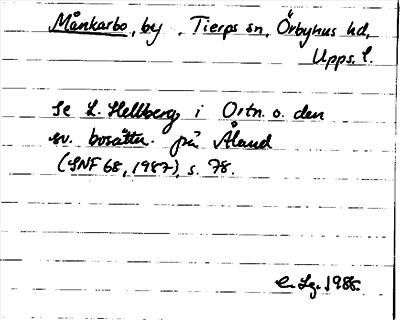 Månkarbo, by, Tierps sn, Örbyhus hd,
Upps. l.
Se L. Hellberg i Ortn. o. den
sv. bosättn. på Åland
(SNF 68, 1987), s. 78.
1988.